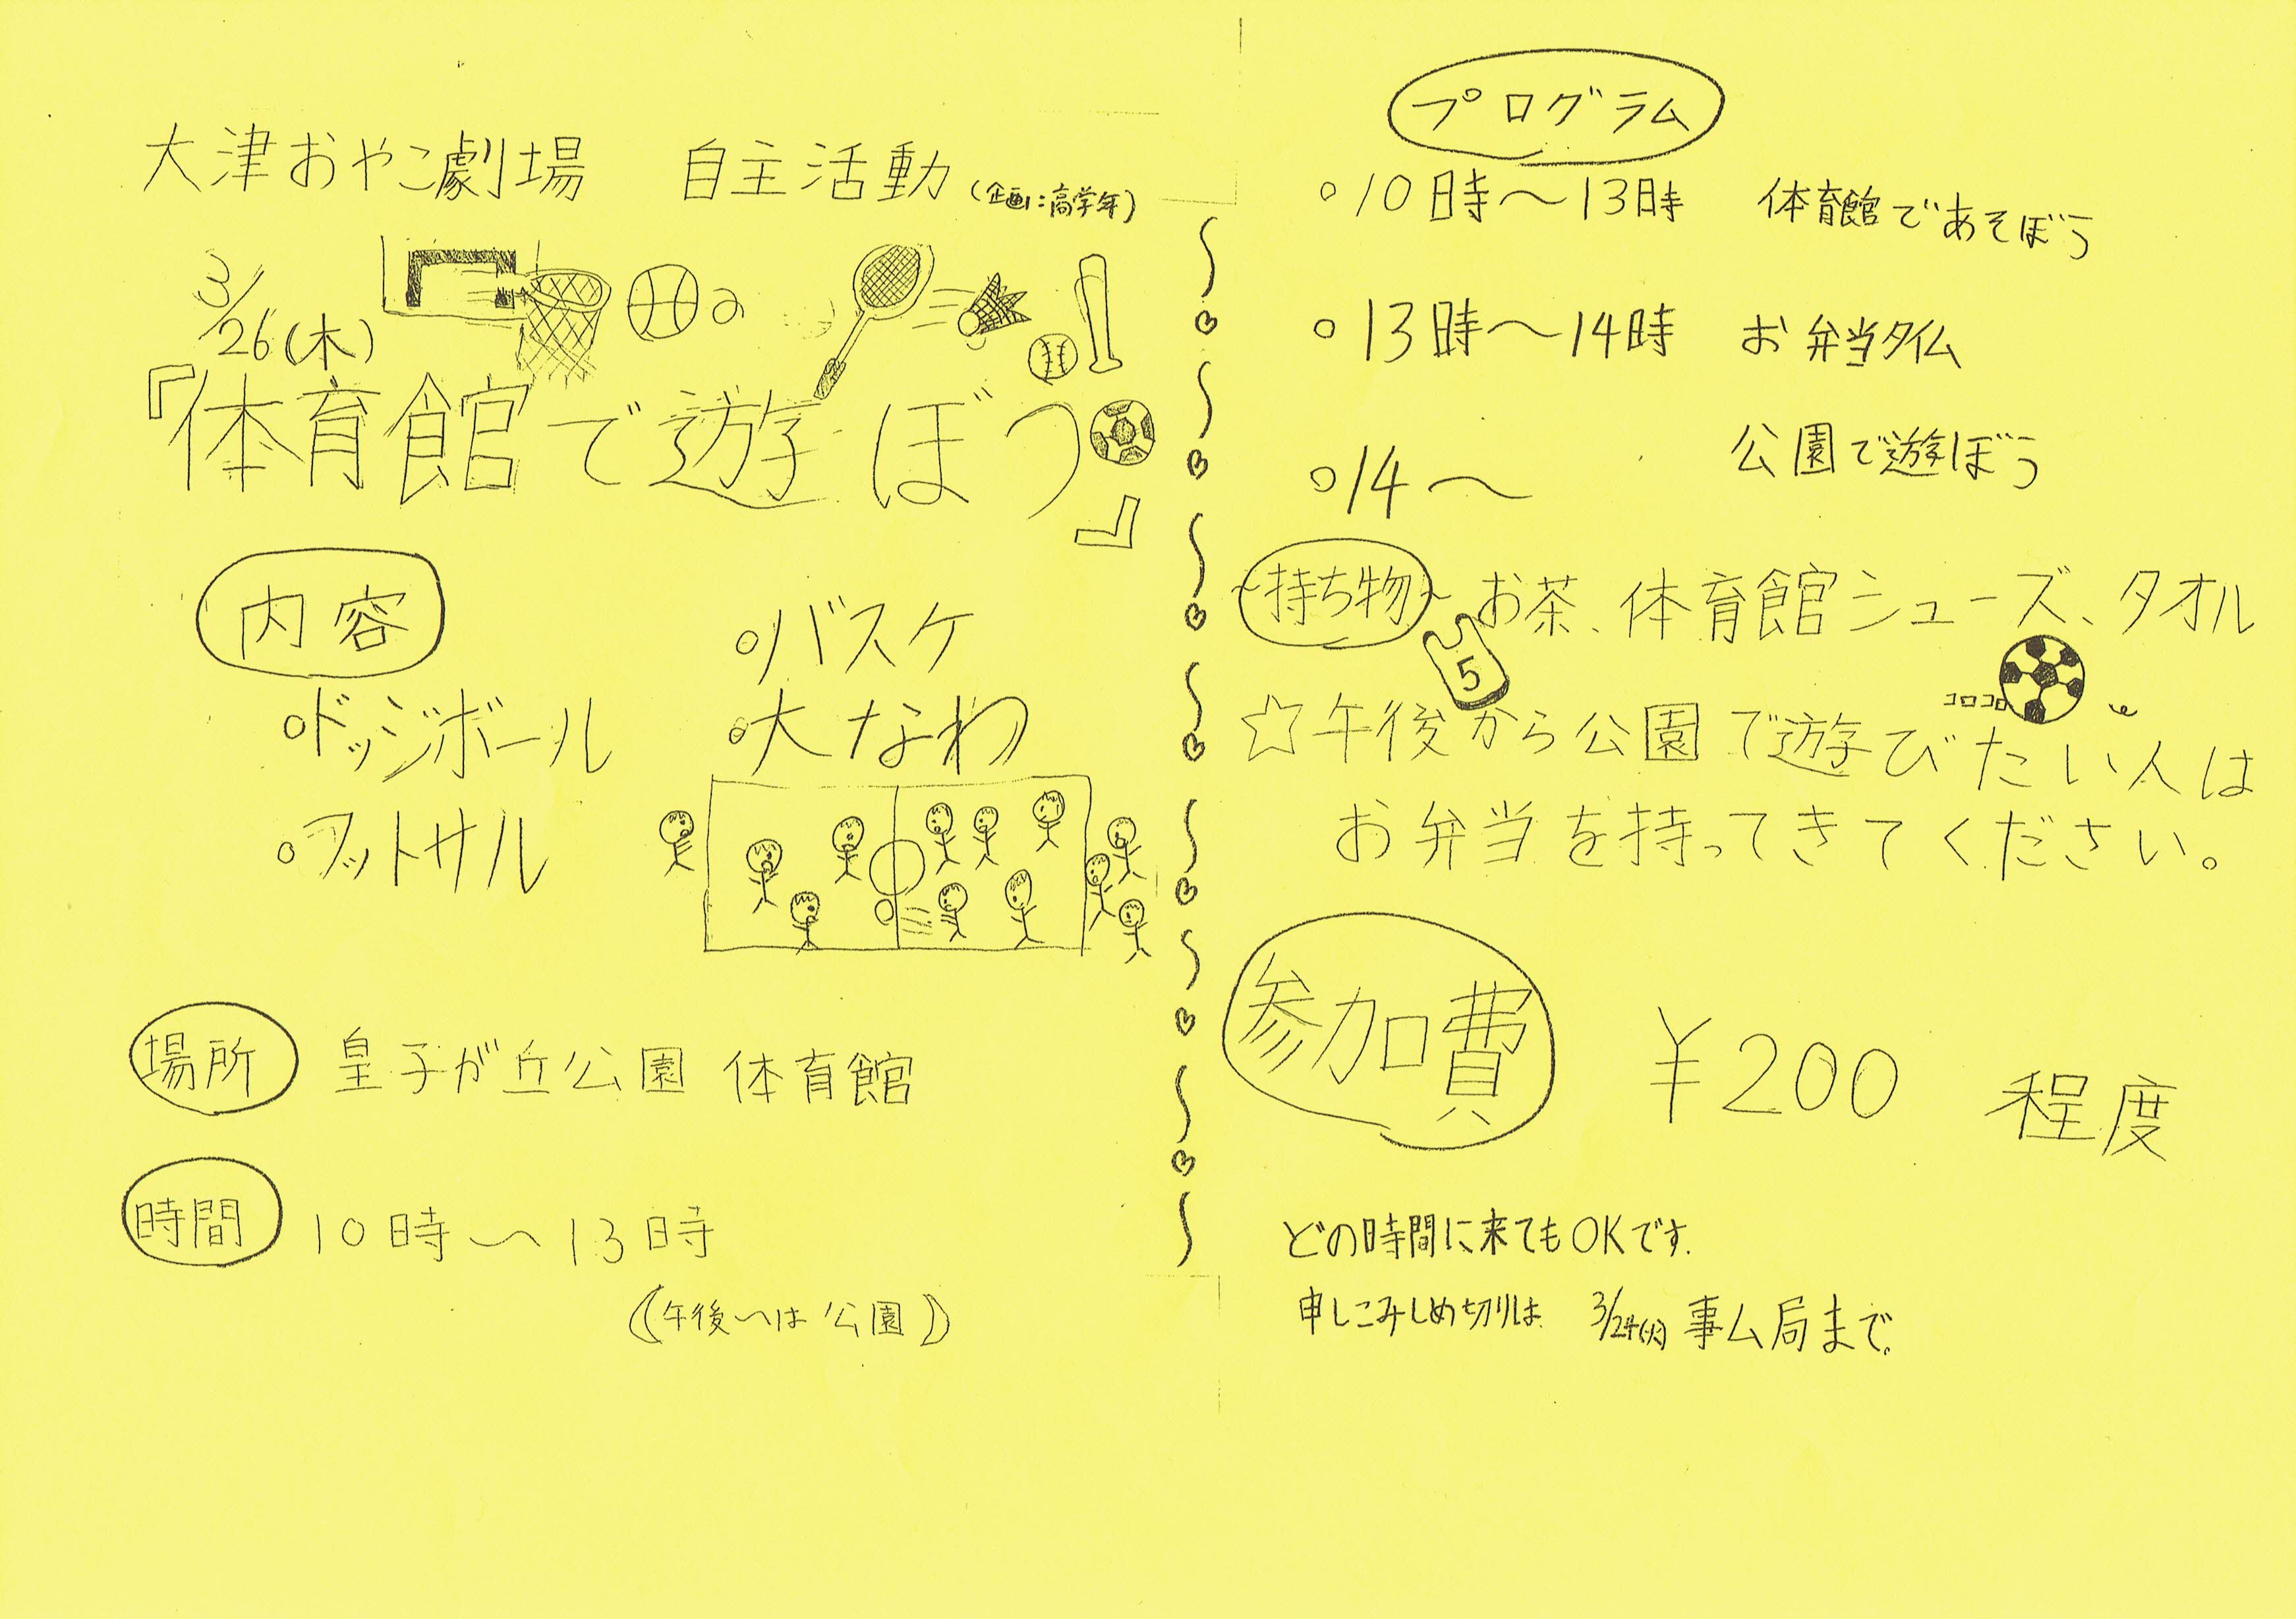 大津おやこ劇場 自主活動(企画:高学年)
3/26(木)
『体育館で遊ぼう』
内容
○ドッジボール
○フットサル
○バスケ
○大なわ
場所 皇子が丘公園 体育館
時間 10時〜13時
(午後〜は公園)
プログラム
○10時〜13時 体育館であそぼう
○13時〜14時 お弁当タイム
○14〜 公園で遊ぼう
持ち物 お茶、体育館シューズ、タオル
5
コロコロ
☆午後から公園で遊びたい人は
お弁当を持ってきてください。
参加費 ¥200 程度
どの時間に来てもOKです.
申しこみしめ切りは 3/24(火) 事ム局まで。